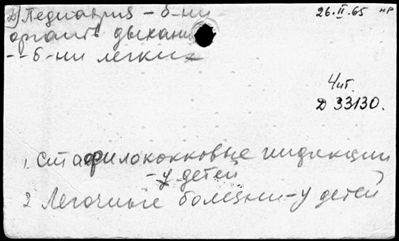 Педиатрия – б-ни
26.II.65
органов дыхани
-- б-ни легких
Чит.
Д 33130.
1. Стафилококковые инфекции
- у детей
2 Легочные болезни - у детей